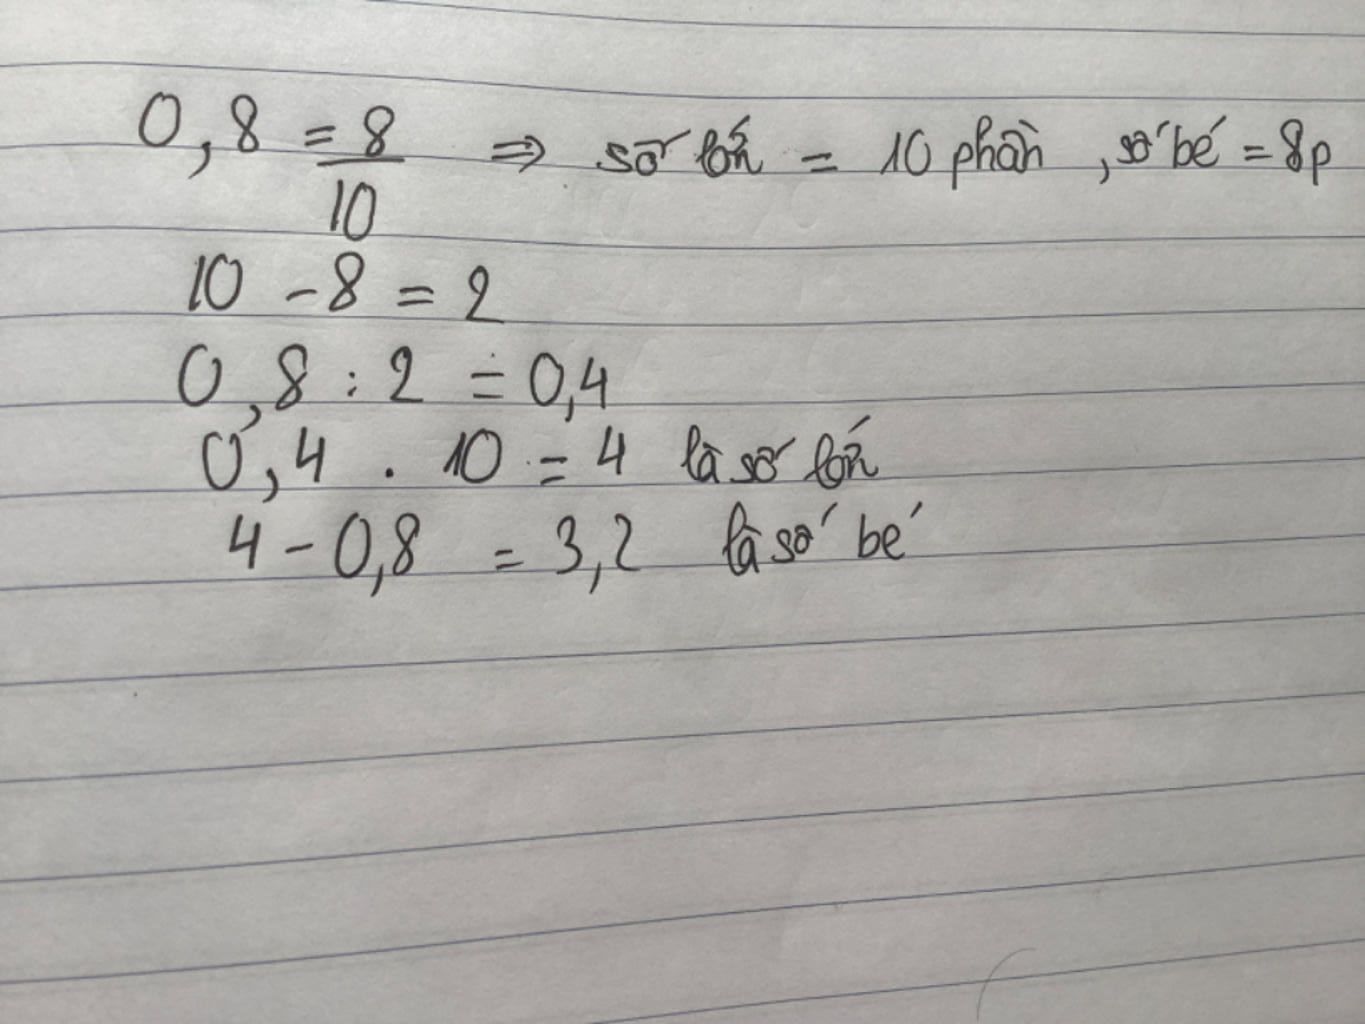 0,8 = 8/10 ⇒ số lớn = 10 phần , số bé = 8p
10 - 8 = 2
0,8 : 2 = 0,4
0,4 . 10 = 4 là số lớn
4 - 0,8 = 3,2 là số bé